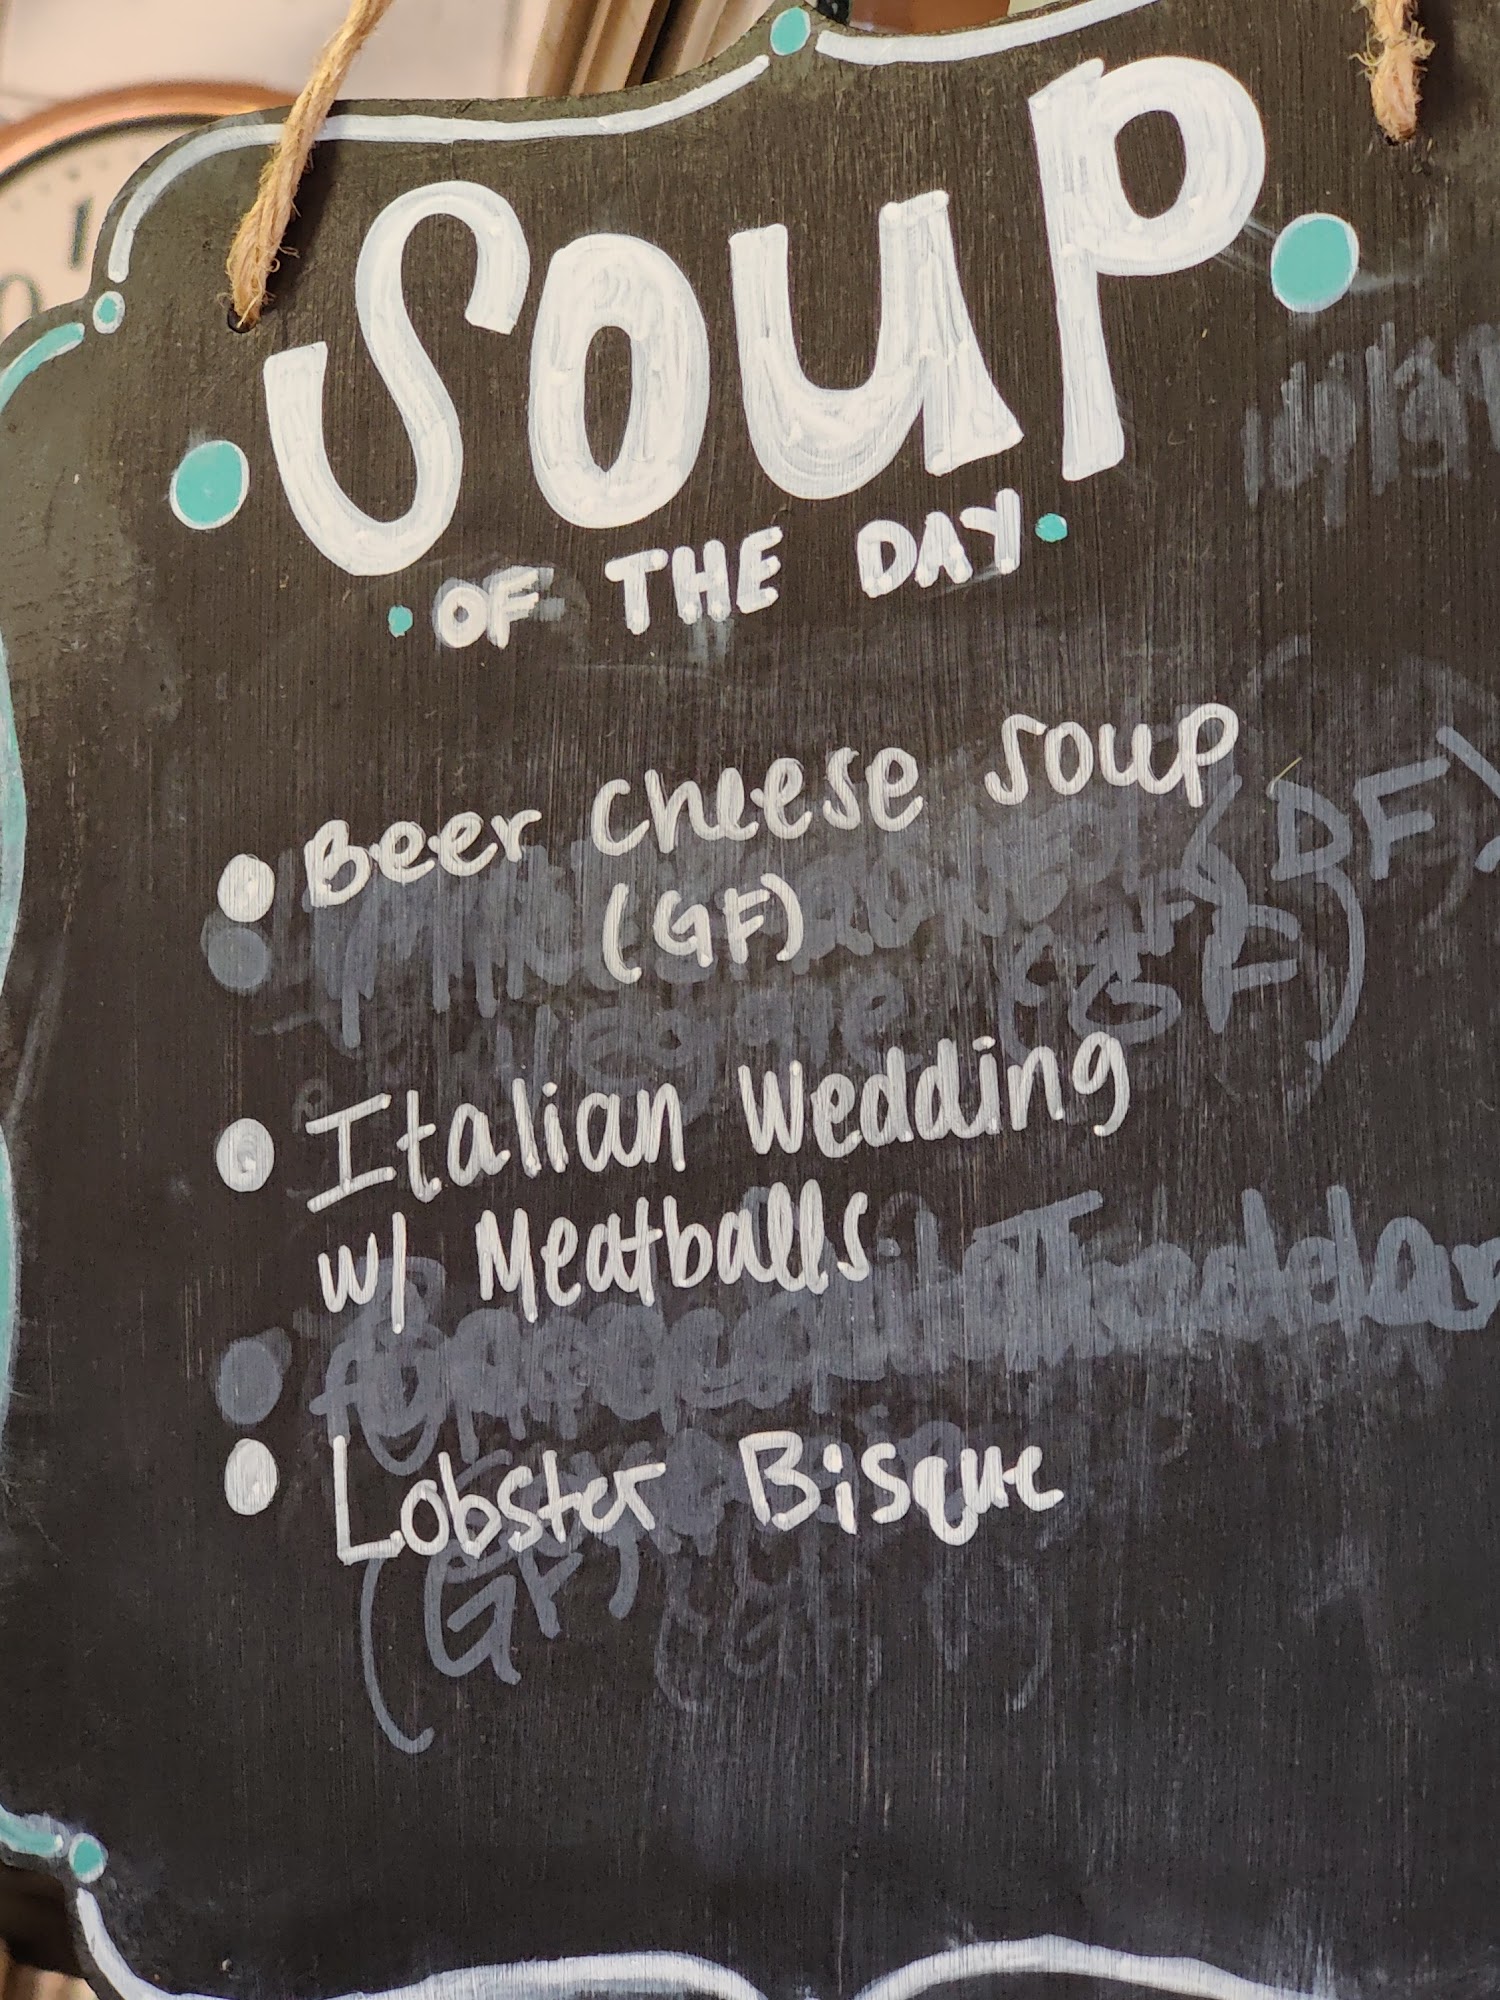 Soup
OF THE DAY
Beer Cheese Soup
(GF)
Italian Wedding
w/ Meatballs
Lobster Bisque
(DF)
(GF)
(GF)